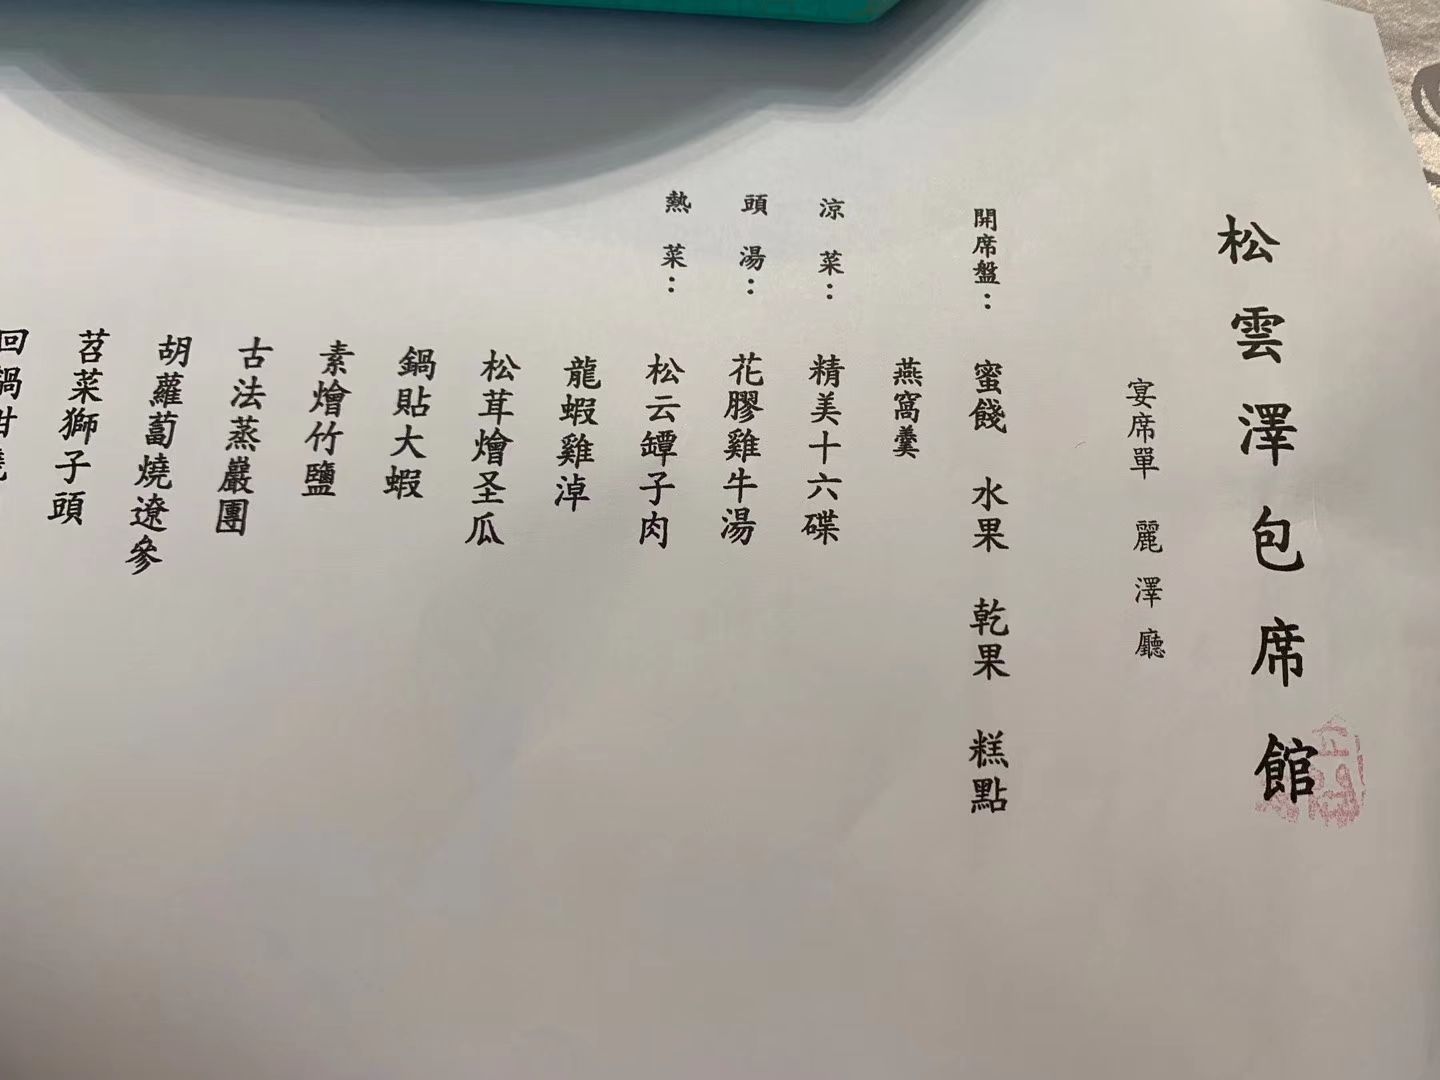 松雲澤包席館
宴席單 麗澤廳
開席盤： 蜜餞 水果 乾果 糕點
燕窩羹
涼菜： 精美十六碟
頭湯： 花膠雞牛湯
熱菜： 松云罈子肉
龍蝦雞淖
松茸燴圣瓜
鍋貼大蝦
素燴竹鹽
古法蒸巖團
胡蘿蔔燒遼參
苕菜獅子頭
回鍋甜燒